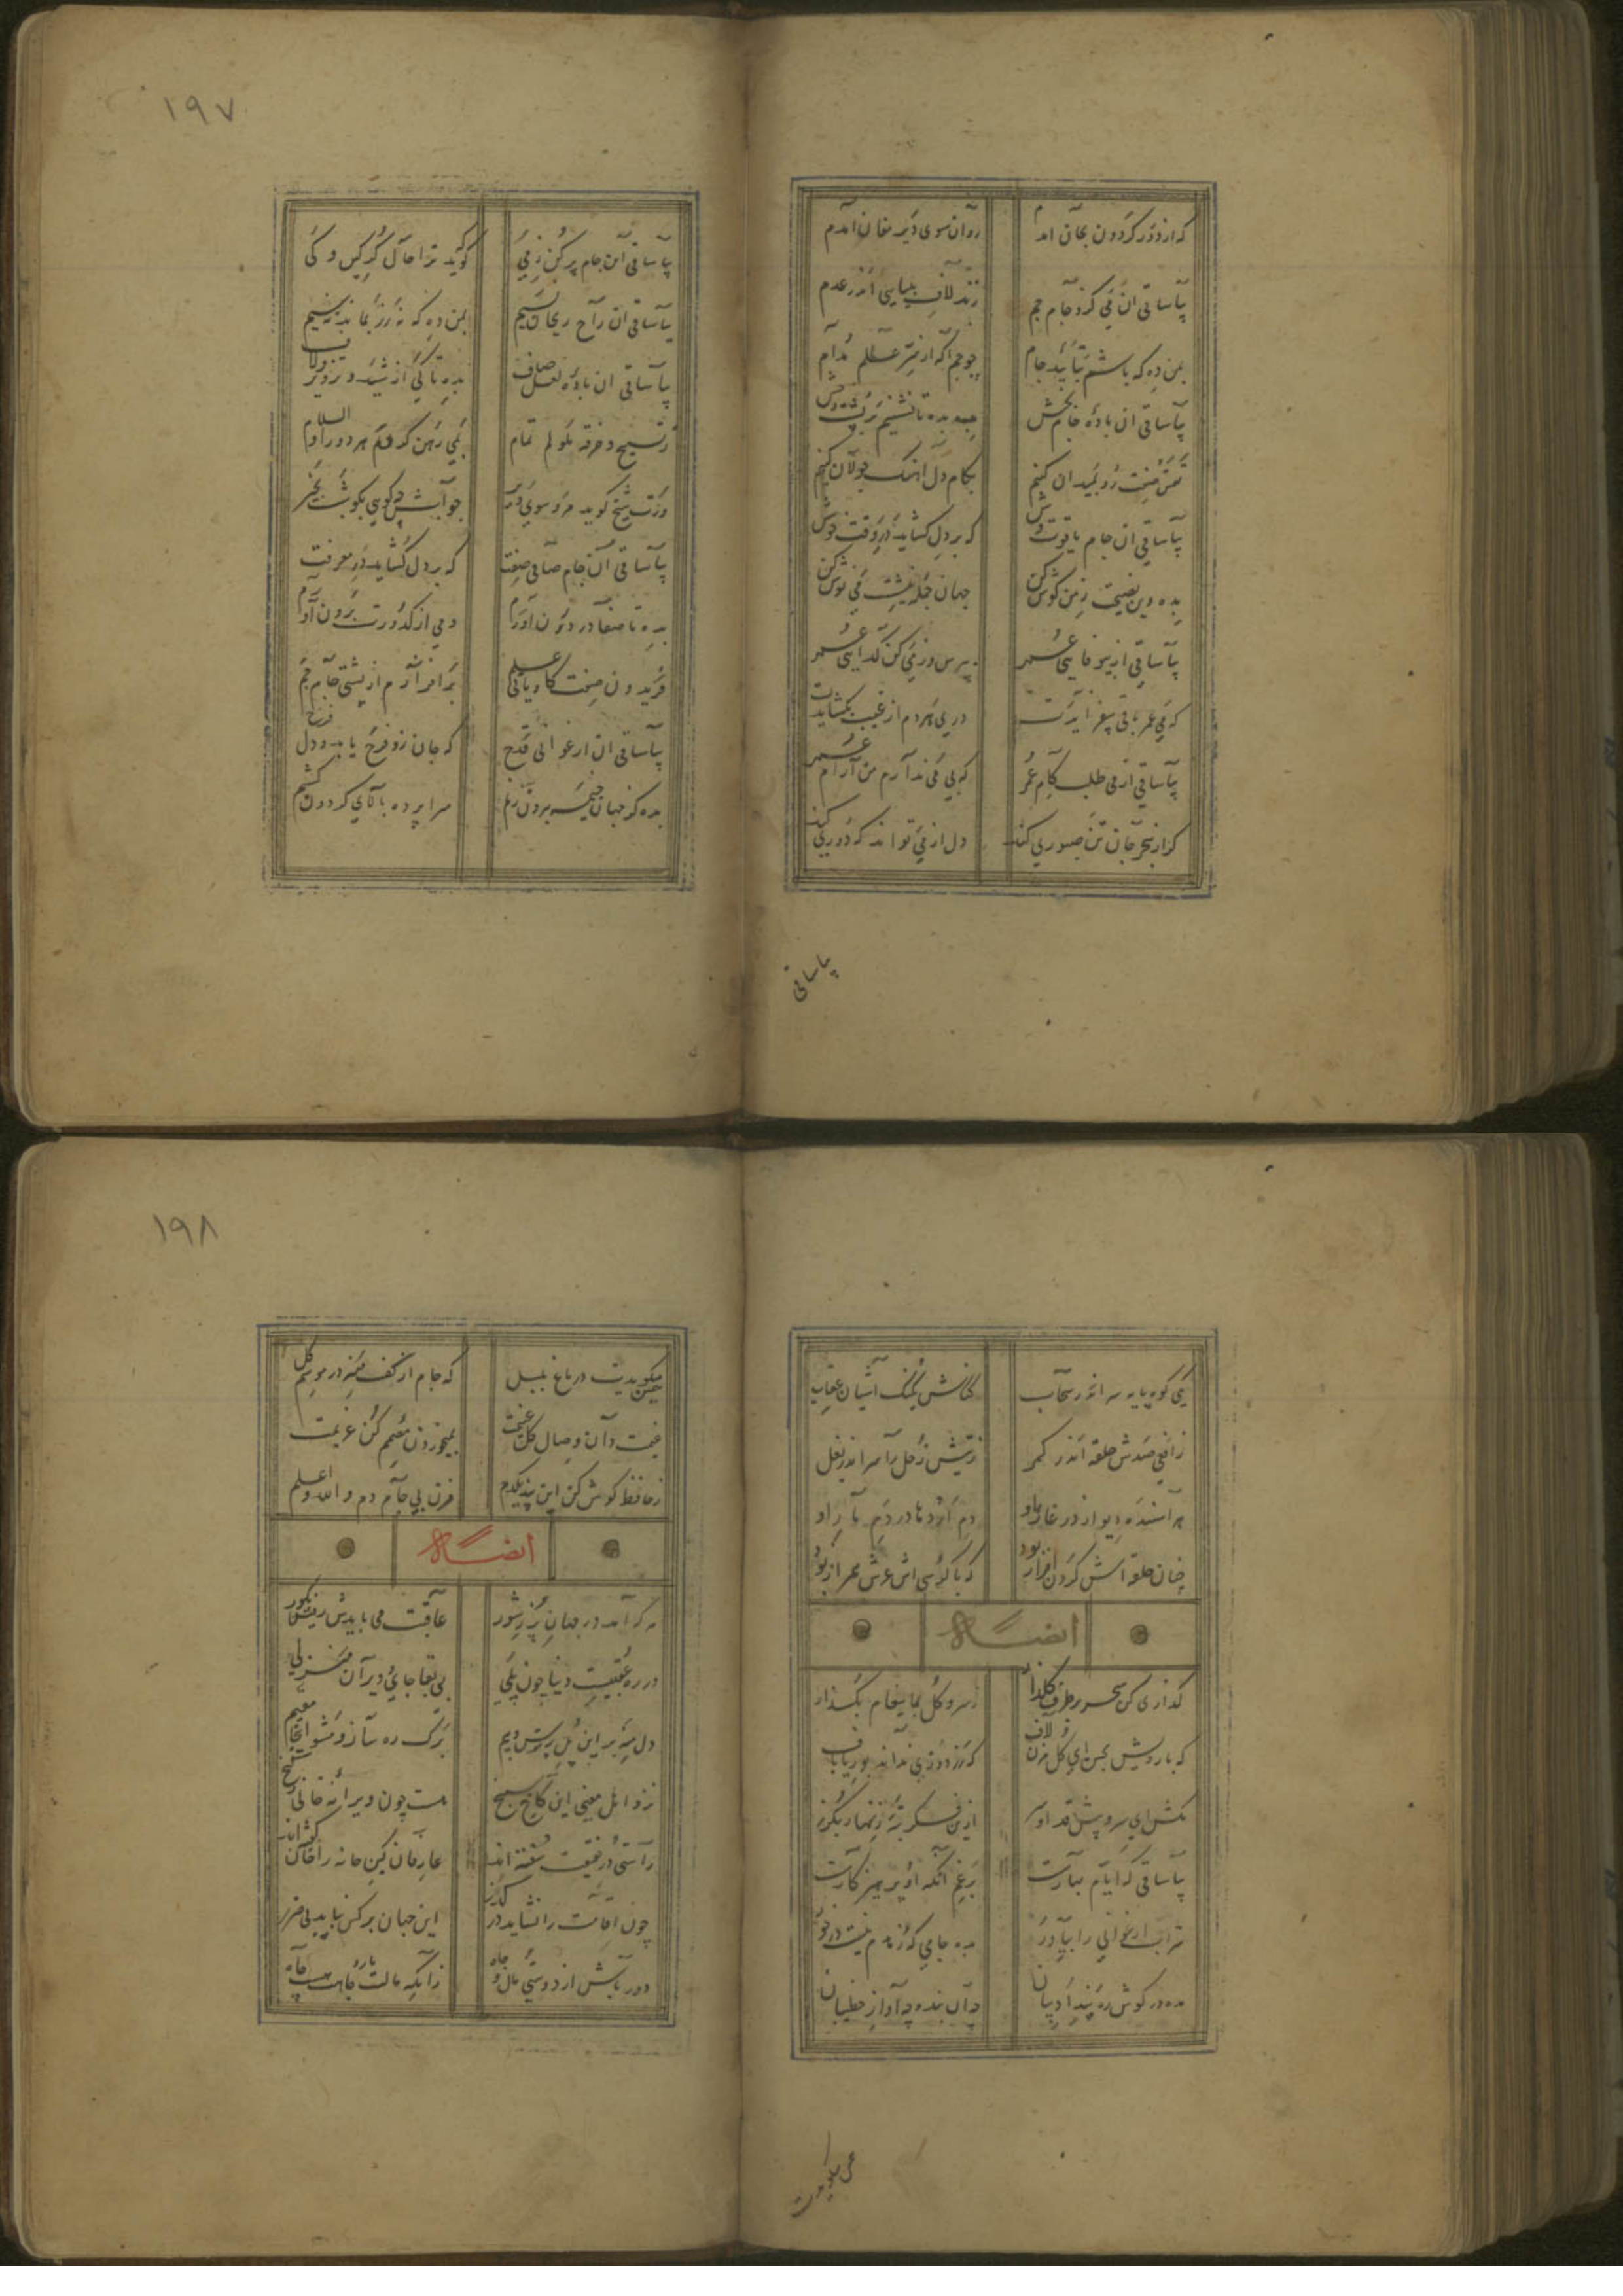 که از دور کردون بجان امدم روان سوی دیر مغان امدم
بیا ساقی ان می کزو جام جم زند لاف بینایی اندر عدم
بمن ده که باشم بتایید جام چو جم اکه از سر عالم مدام
بیا ساقی ان باده جان بخش بده تا نشینم بر پشت رخش
تهمتن صفت رو بمیدان کنیم بکام دل اهنک جولان کنیم
بیا ساقی ان جام یاقوت وش که بر دل کشاید در وقت خوش
بده وین نصیحت ز من کوش کن جهان جمله می نوش کن
بیا ساقی از بیوفایی عمر بترس وز می کن کدایی عمر
که می عمر باقی بیفزایدت دری هر دم از غیب بکشایدت
بیا ساقی از می طلب کام عمر که بی می ندارم من آرام عمر
کر از هجر جان تن صبوری کند دل از می تواند که دوری کند
بیا ساقی
۱۹۷
بیا ساقی این جام پر کن ز می که کوید ترا حال کسری و کی
بیا ساقی ان راح ریحان نسیم بمن ده که نه زر بماند نه سیم
بیا ساقی ان باده لعل صاف بده تا کی از شید و تزویر و لاف
ز تسبیح و خرقه ملولم تمام بمی رهن کن هر دو را والسلام
ورت شیخ کوید مرو سوی دیر جوابش چه کویی بکو شب بخیر
بیا ساقی آن جام صافی صفت که بر دل کشاید در معرفت
بده تا صفا در درون آورم دمی از کدورت برون آورم
فریدون صفت کاویانی علم برافرازم از پشتی جام جم
بیا ساقی ان ارغوانی قدح که جان زو فرح یابد و دل فرح
بده کز جهان خیمه بیرون زنم سراپرده بالای کردون کشم
یکی کوه پایه سر اندر سحاب کتفش آشیان عقاب
ز افعی صدش حلقه اندر کمر ز تیغش زحل را سر اندر بغل
هر آسنده دیو از در غار او دم اژدها در دم مار او
چنان حلقه اش کردن افراز بود که با کرسی اش عرش همراز بود
ایضاً
کذاری کن سحر بر طرف کلزار ز سرو و کل بما پیغام بکذار
که با رویش بحسن ای کل مزن لاف که زردوزی نداند بوریا باف
مکش ای سرو پیش قد او سر ازین فکرت زنهار بکذر
بیا ساقی که ایام بهارست برغم آنکه او پرهیزکارست
شراب ارغوانی را بیاور بده جامی که زهدم نیست در خور
مده در کوش ره پند ادیبان چه آن بنده چه آواز خطیبان
چمن میکویدت
۱۹۸
چمن میکویدت در باغ بلبل که جام از کف منه در موسم کل
غنیمت دان وصال کل غنیمت بمیخوردن مصمم کن عزیمت
ز حافظ کوش کن این پند یکدم مزن بی جام دم والله اعلم
ایضاً
هر که آمد در جهان پر ز شور عاقبت می بایدش رفتن بکور
در ره عقبیست دنیا چون پلی بی بقا جایی و ویران منزلی
دل منه بر این پل پر ترس و بیم برک ره ساز و مشو اینجا مقیم
نزد اهل معنی این کاخ سپنج هست چون ویرانه خالی ز کنج
راستی در حقیقت سفته اند عارفان کین خانه را خان کفته اند
چون اقامت را نشاید در کذر این جهان بر کس نیاید بی ضرر
دور باش از دوستی مال و جاه زانکه مالت مار و جاهت هست چاه